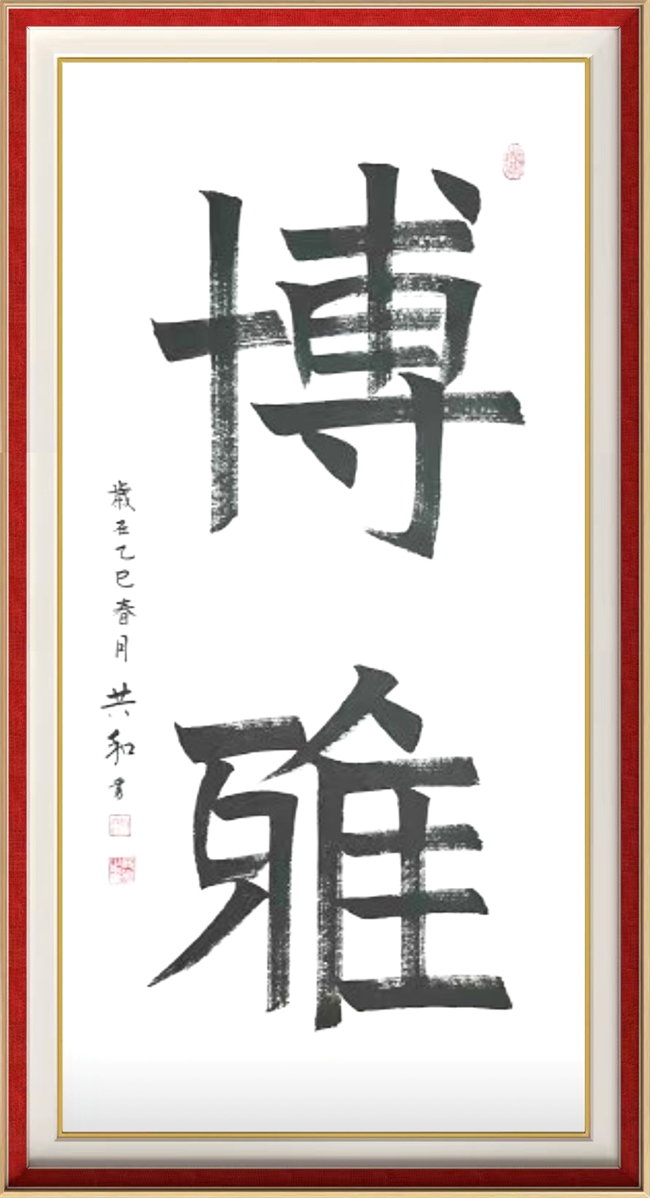 博雅
歲在乙巳春月共和書